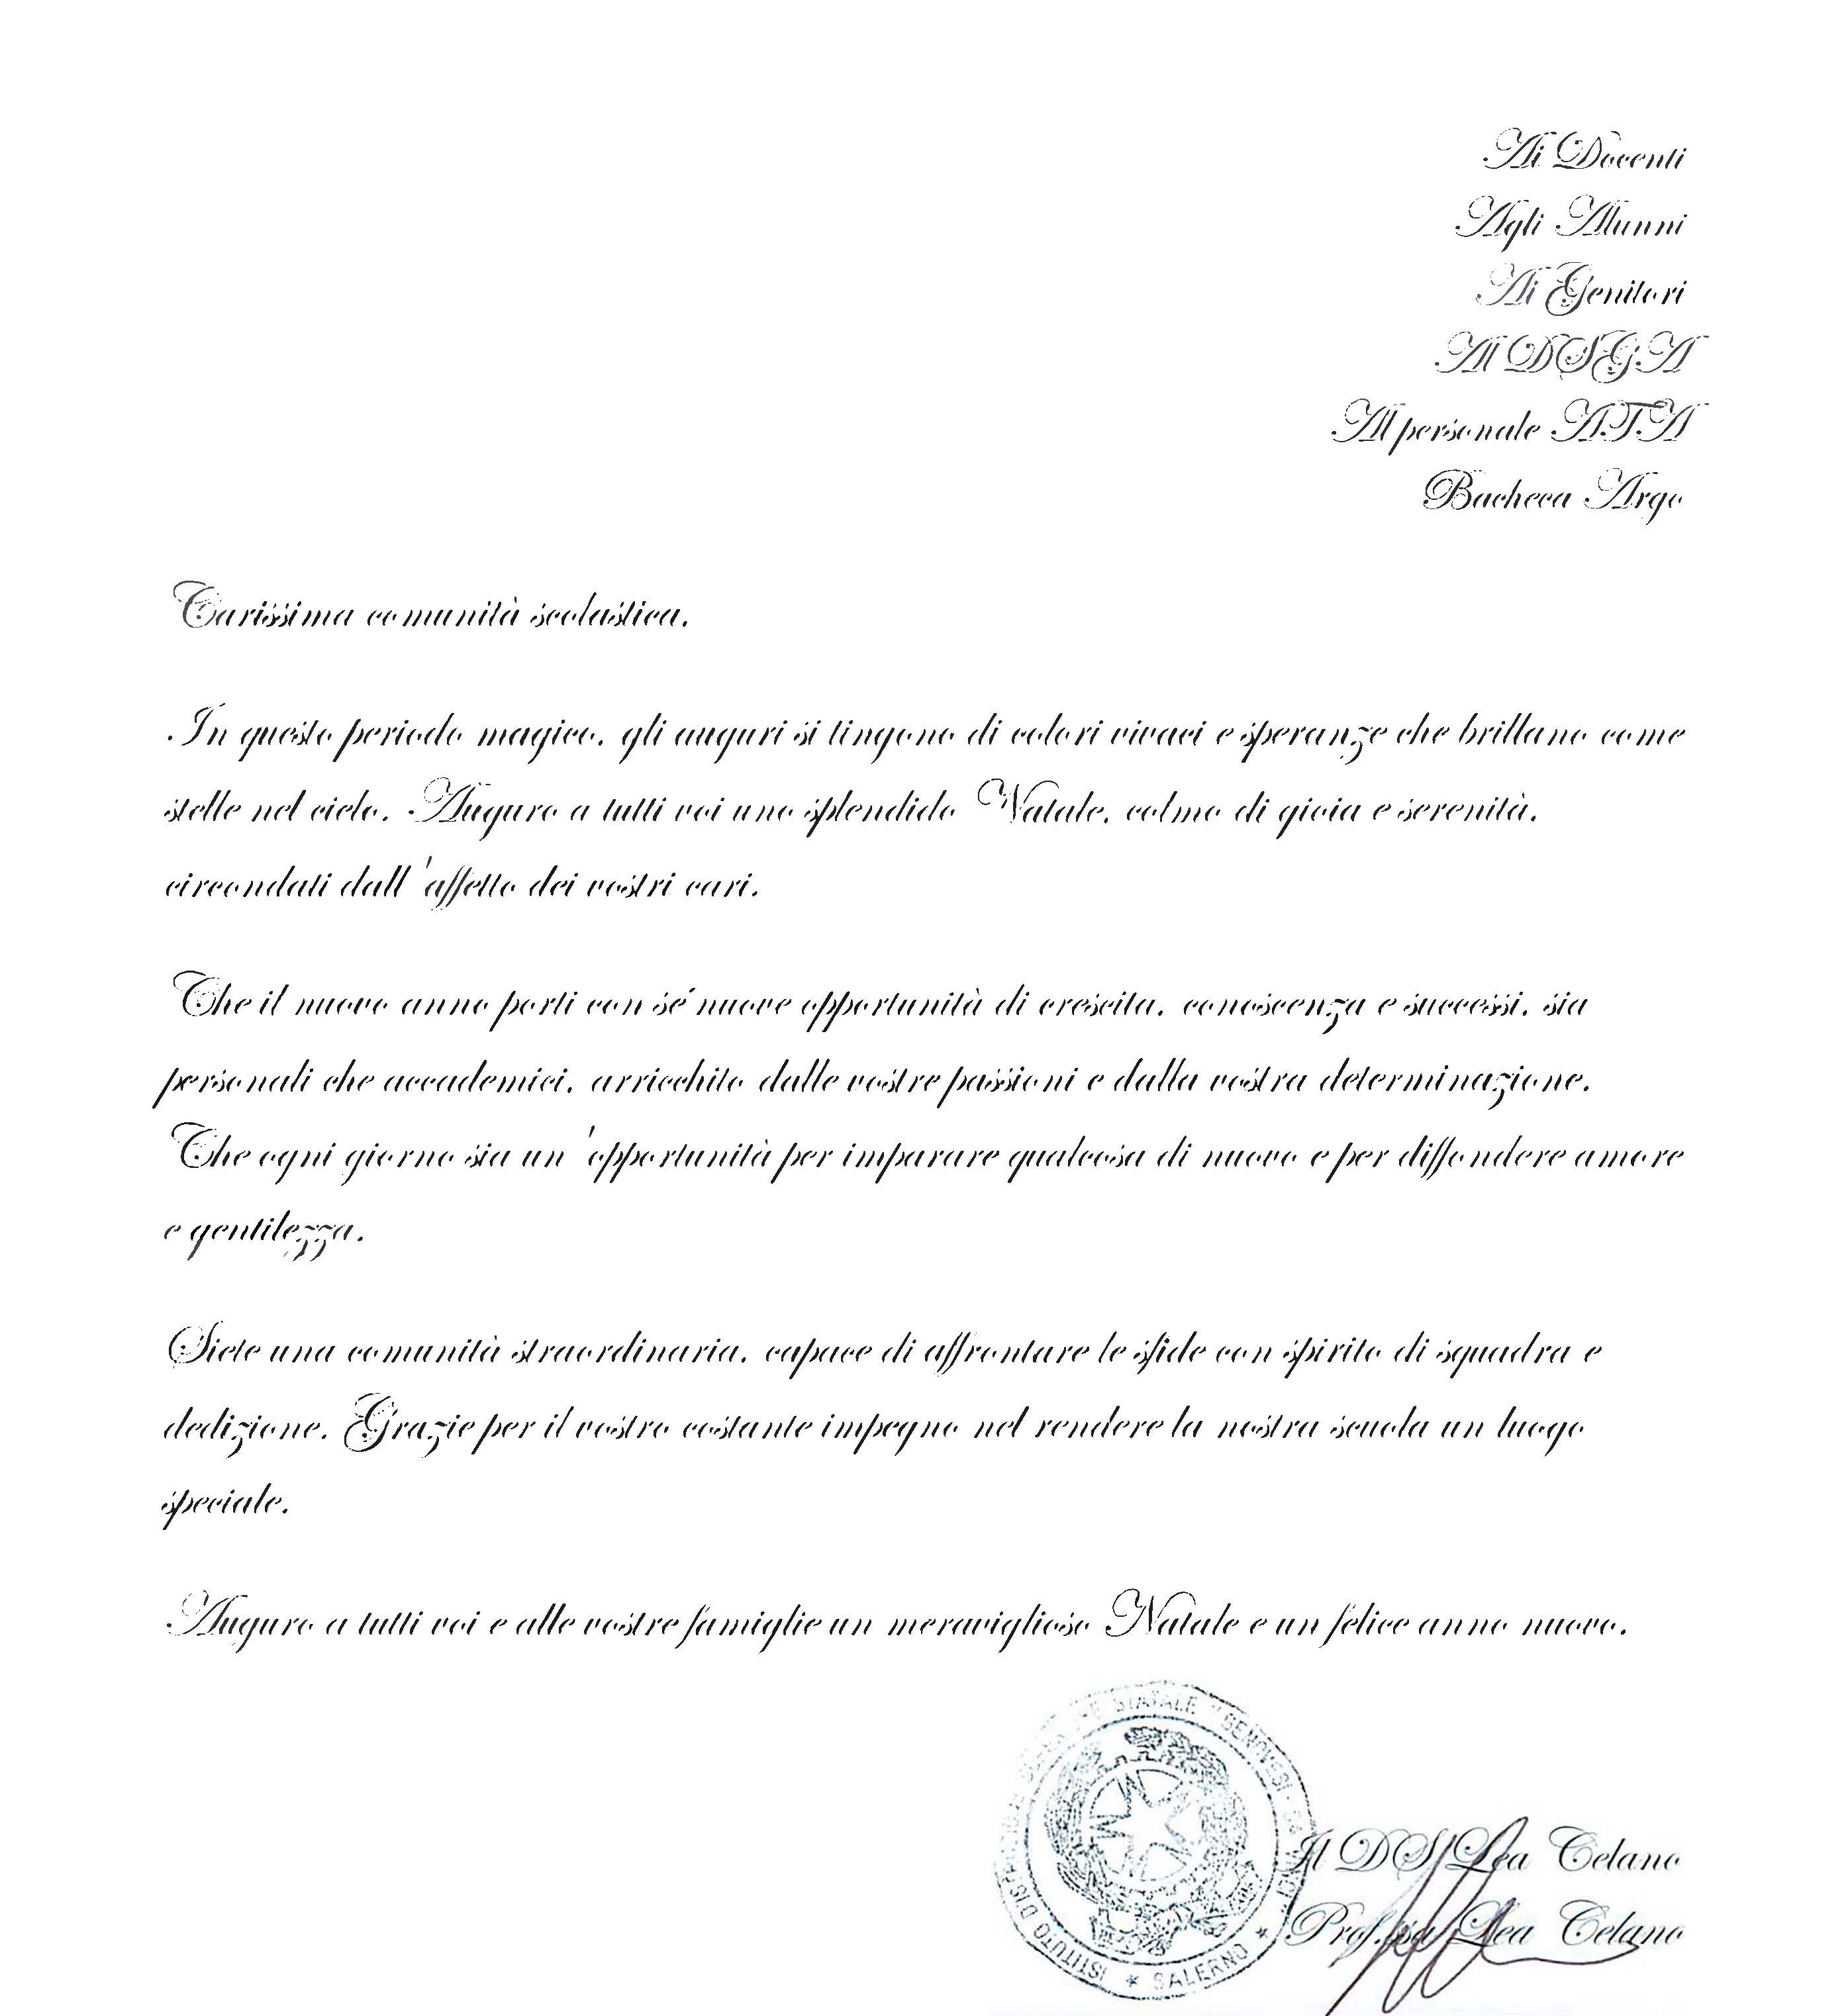 Ai Docenti
Agli Alunni
Ai Genitori
Al DSGA
Al personale ATA
Bacheca Argo
Carissima comunità scolastica,
In questo periodo magico, gli auguri si tingono di colori vivaci e speranze che brillano come
stelle nel cielo. Auguro a tutti voi uno splendido Natale, colmo di gioia e serenità,
circondati dall'affetto dei vostri cari.
Che il nuovo anno porti con sé nuove opportunità di crescita, conoscenza e successi, sia
personali che accademici, arricchito dalle vostre passioni e dalla vostra determinazione.
Che ogni giorno sia un'opportunità per imparare qualcosa di nuovo e per diffondere amore
e gentilezza.
Siete una comunità straordinaria, capace di affrontare le sfide con spirito di squadra e
dedizione. Grazie per il vostro costante impegno nel rendere la nostra scuola un luogo
speciale.
Auguro a tutti voi e alle vostre famiglie un meraviglioso Natale e un felice anno nuovo.
ISTITUTO STATALE "GENOVESI
* SALERNO *
Il DS Lea Celano
Prof.ssa Lea Celano